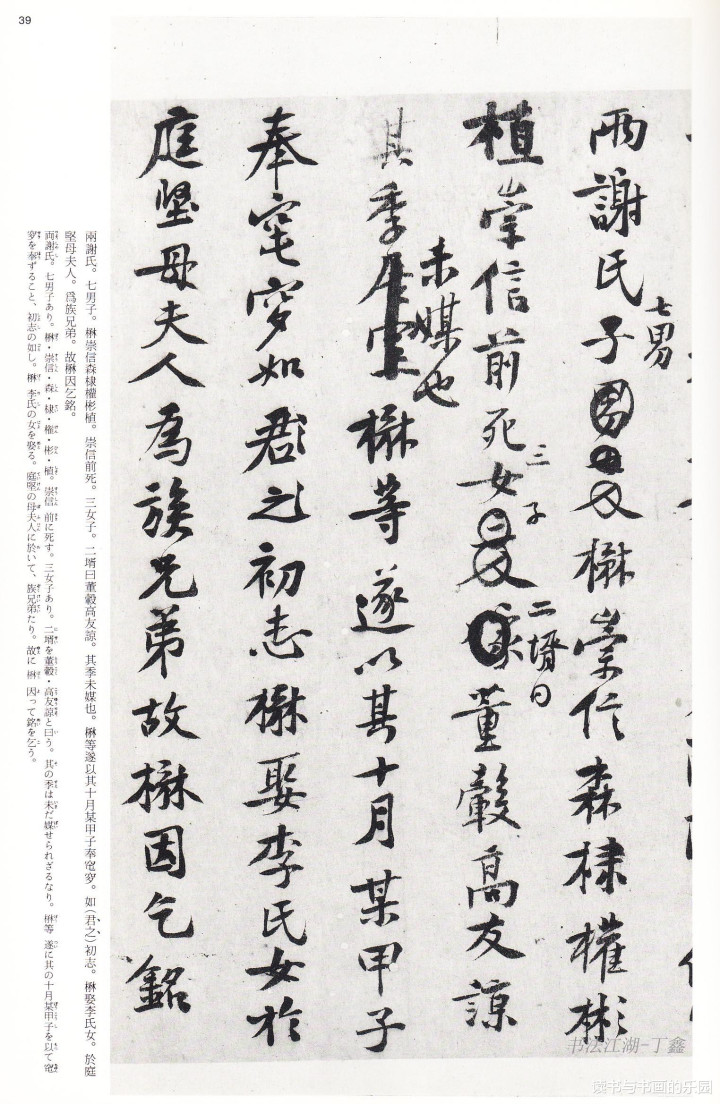 39
兩謝氏子楙崇信森棣權彬
七男
植崇信前死女董轂高友諒
三子
二壻曰
其季楙等遂以其十月某甲子
未媒也
奉窀穸如君之初志楙娶李氏女於
庭堅母夫人爲族兄弟故楙因乞銘
兩謝氏。七男子。楙崇信森棣權彬植。崇信前死。三女子。二壻曰董轂高友諒。其季未媒也。楙等遂以其十月某甲子奉窀穸。如(君之)初志。楙娶李氏女。於庭
堅母夫人。爲族兄弟。故楙因乞銘。
両謝氏。七男子あり。楙・崇信・森・棣・権・彬・植。崇信 前に死す。三女子あり。二壻を董轂・高友諒と曰う。其の季は未だ媒せられざるなり。楙等 遂に其の十月某甲子を以て窀
穸を奉ずること、初志の如し。楙 李氏の女を娶る。庭堅の母夫人に於いて、族兄弟たり。故に楙 因って銘を乞う。
书法江湖-丁鑫
隶书与书画的乐园